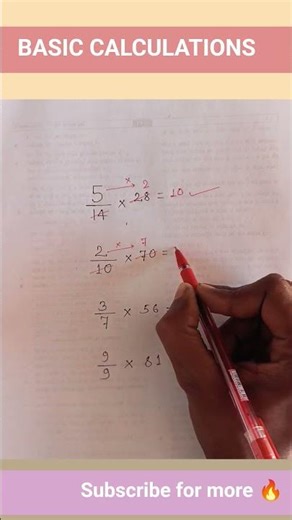 BASIC CALCULATIONS
5/14 × 28 = 10
× 2
2/10 × 70 =
× 7
3/7 × 56
9/9 × 81
Subscribe for more 🔥